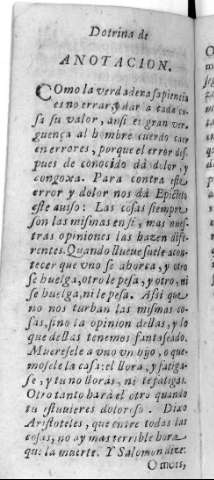 Dotrina de
ANOTACION.
COmo la verdadera sapiencia
es no errar, y dar a cada co-
sa su valor, ansi es gran ver-
guença al hombre cuerdo caer
en errores, porque el error des-
pues de conocido dà dolor, y
congoxa. Para contra este
error y dolor nos dà Epicteto
este auiso: Las cosas siempre
son las mismas en si, mas nues-
tras opiniones las hazen dife-
rentes. Quando llueue suele acon-
tecer que vno se ahorca, y otro
se huelga, otro le pesa, y otro, ni
se huelga, ni le pesa. Asi que
no nos turban las mismas co-
sas, sino la opinion dellas, y lo
que dellas tenemos fantaseado.
Mueresele a vno vn hijo, o que-
mosele la casa: el llora, y fatiga-
se, y tu no lloras, ni te fatigas.
Otro tanto hará el otro quando
tu estuuieres doloroso. Dixo
Aristoteles, que entre todas las
cosas, no ay mas terrible hora
que la muerte. Y Salomon dize:
O mors,